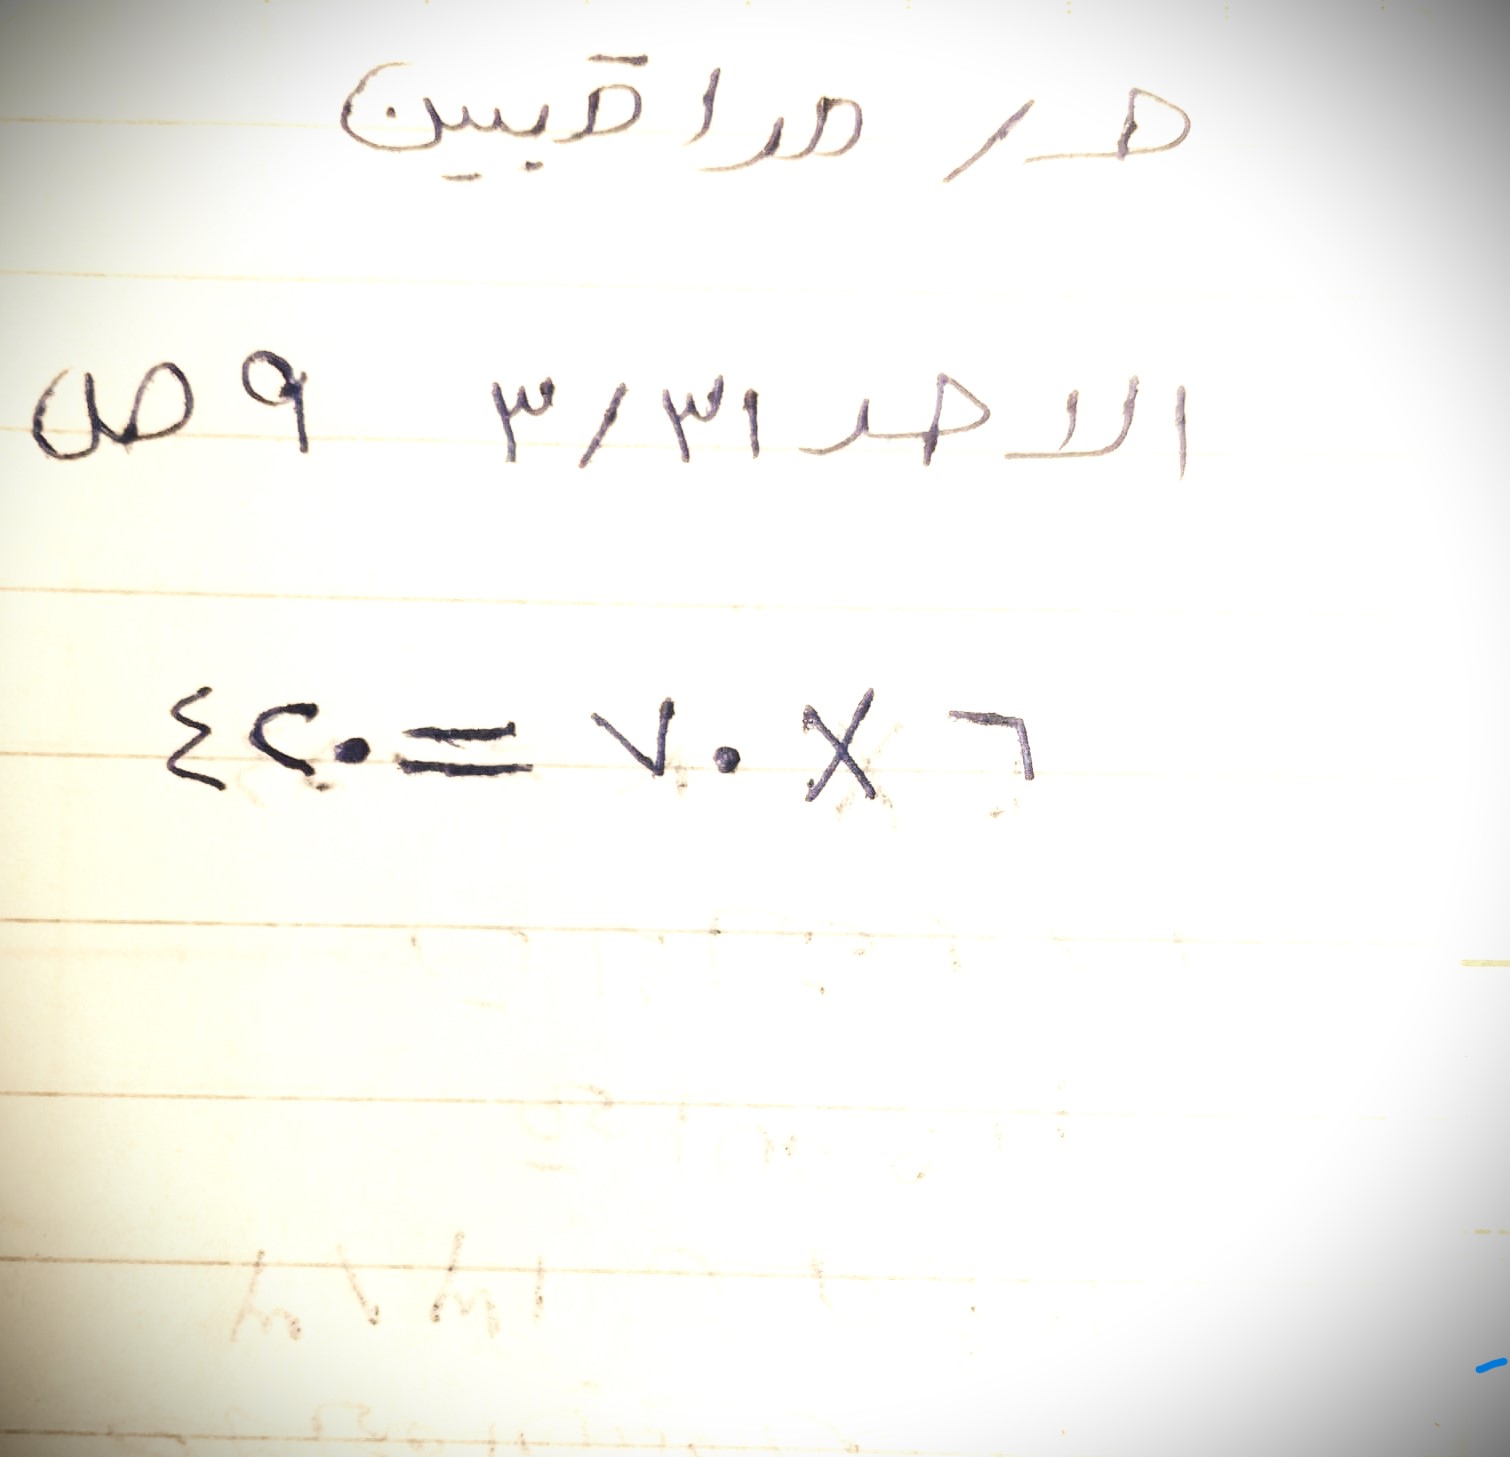 ح / مراقبين
الاحد ٣/٣١ ٩ ص
٦ × ٧٠ = ٤٢٠